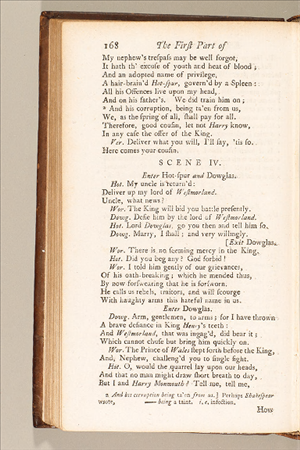 168 The First Part of
My nephew's trespass may be well forgot,
It hath th' excuse of youth and heat of blood;
And an adopted name of privilege,
A hair-brain'd Hot-spur, govern'd by a Spleen:
All his Offences live upon my head,
And on his father's. We did train him on;
* And his corruption, being ta'en from us,
We, as the spring of all, shall pay for all.
Therefore, good cousin, let not Harry know,
In any case the offer of the King.
Ver. Deliver what you will, I'll say, 'tis so.
Here comes your cousin.
SCENE IV.
Enter Hot-spur and Dowglas.
Hot. My uncle is return'd:
Deliver up my lord of Westmorland.
Uncle, what news?
Wor. The King will bid you battle presently.
Dowg. Defie him by the lord of Westmorland.
Hot. Lord Dowglas, go you then and tell him so.
Dowg. Marry, I shall; and very willingly.
[Exit Dowglas.
Wor. There is no seeming mercy in the King.
Hot. Did you beg any? God forbid!
Wor. I told him gently of our grievances,
Of his oath-breaking; which he mended thus,
By now forswearing that he is forsworn.
He calls us rebels, traitors, and will scourge
With haughty arms this hateful name in us.
Enter Dowglas.
Dowg. Arm, gentlemen, to arms; for I have thrown
A brave defiance in King Henry's teeth:
And Westmorland, that was ingag'd, did bear it;
Which cannot chuse but bring him quickly on.
Wor. The Prince of Wales stept forth before the King,
And, Nephew, challeng'd you to single fight.
Hot. O, would the quarrel lay upon our heads,
And that no man might draw short breath to day,
But I and Harry Monmouth! Tell me, tell me,
2 And his corruption being ta'en from us.] Perhaps Shakespear
wrote, —— being a taint. i. e. infection.
How